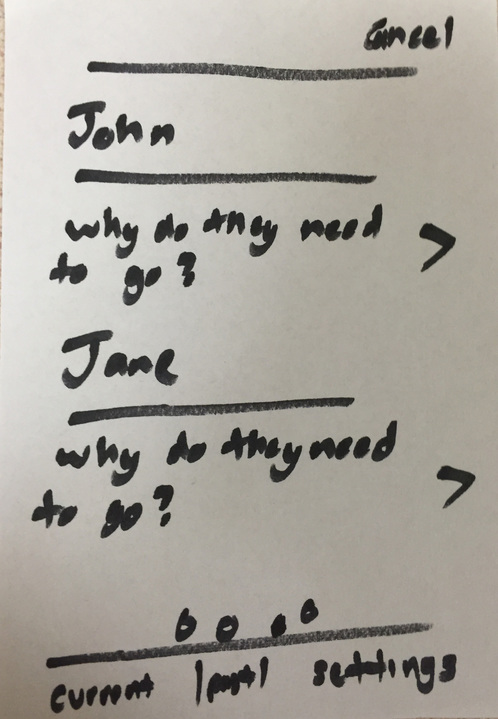 Cancel
John
why do they need
to go?
>
Jane
why do they need
to go?
>
current | past | settings